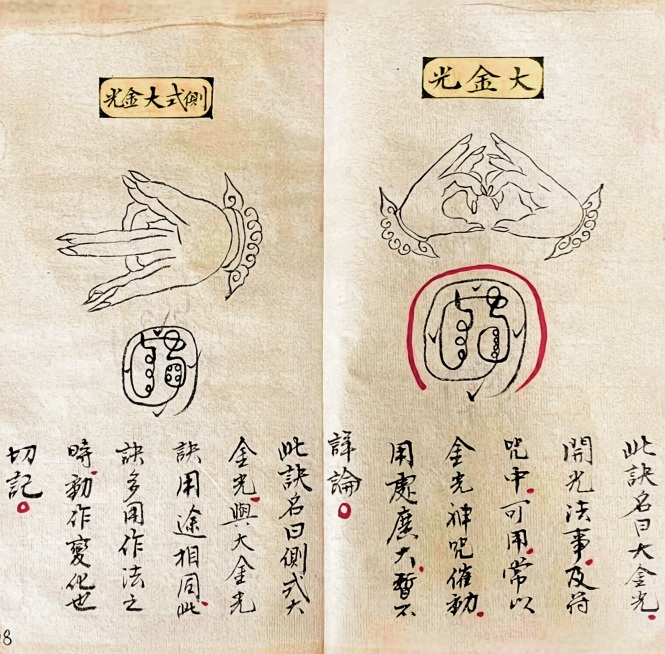 大金光
此訣名曰大金光。
開光法事。及符
咒中。可用。常以
金光神咒催動。
用處廣大。暫不
詳論。
側式大金光
此訣名曰側式大
金光。與大金光
訣用途相同。此
訣多用作法之
時。動作變化也
切記。